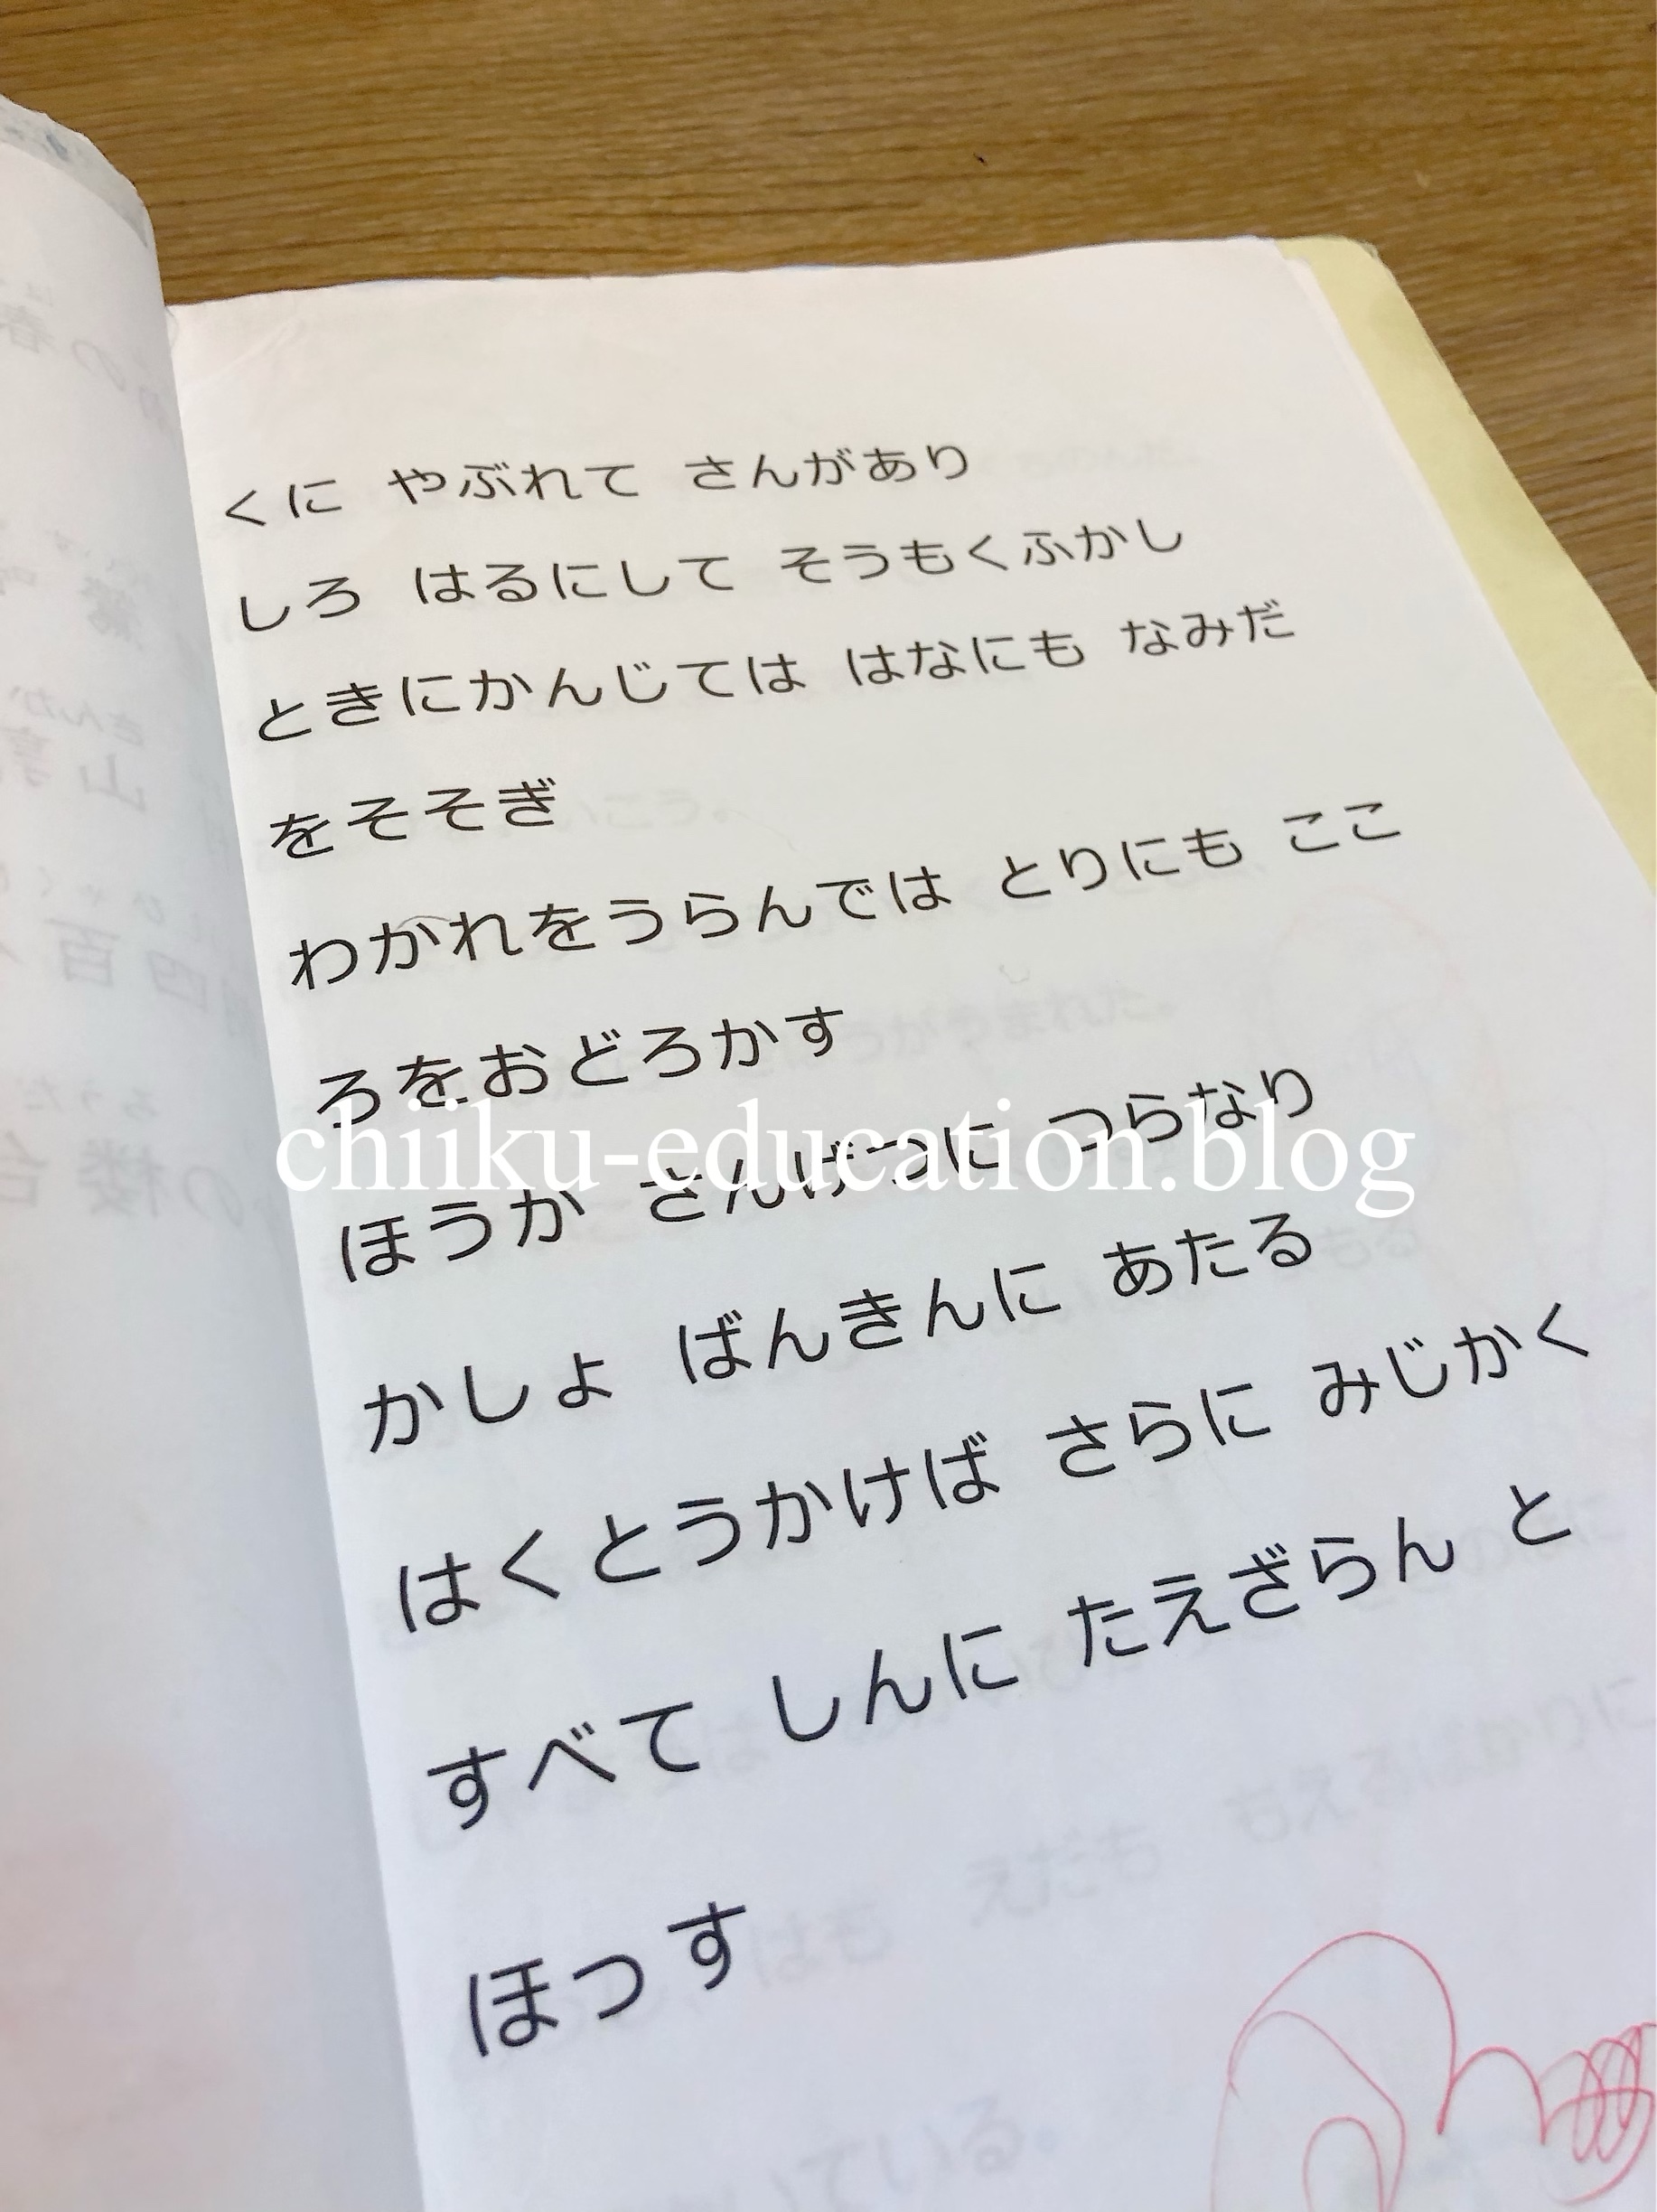 くに やぶれて さんがあり
しろ はるにして そうもくふかし
ときにかんじては はなにも なみだ
をそそぎ
わかれをうらんでは とりにも ここ
ろをおどろかす
ほうか さんげつに つらなり
chiiku-education.blog
かしょ ばんきんに あたる
はくとうかけば さらに みじかく
すべて しんに たえざらん と
ほっす